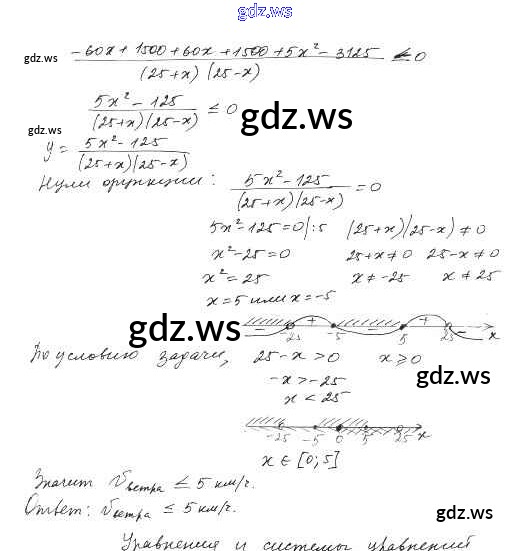 gdz.ws
-60x + 1500 + 60x + 1500 + 5x² - 3125 / (25+x)(25-x) ≤ 0
gdz.ws
5x² - 125 / (25+x)(25-x) ≤ 0
gdz.ws
gdz.ws
y = 5x² - 125 / (25+x)(25-x)
Нули функции: 5x² - 125 / (25+x)(25-x) = 0
5x² - 125 = 0 |:5 (25+x)(25-x) ≠ 0
x² - 25 = 0 25+x ≠ 0 25-x ≠ 0
x² = 25 x ≠ -25 x ≠ 25
x = 5 или x = -5
gdz.ws
- + - + -
-25 -5 5 25 x
По условию задачи, 25 - x > 0 x ≥ 0
-x > -25
gdz.ws
x < 25
-25 -5 0 5 25 x
x ∈ [0; 5]
Значит vветра ≤ 5 км/ч.
gdz.ws
Ответ: vветра ≤ 5 км/ч.
gdz.ws
Уравнения и системы уравнений